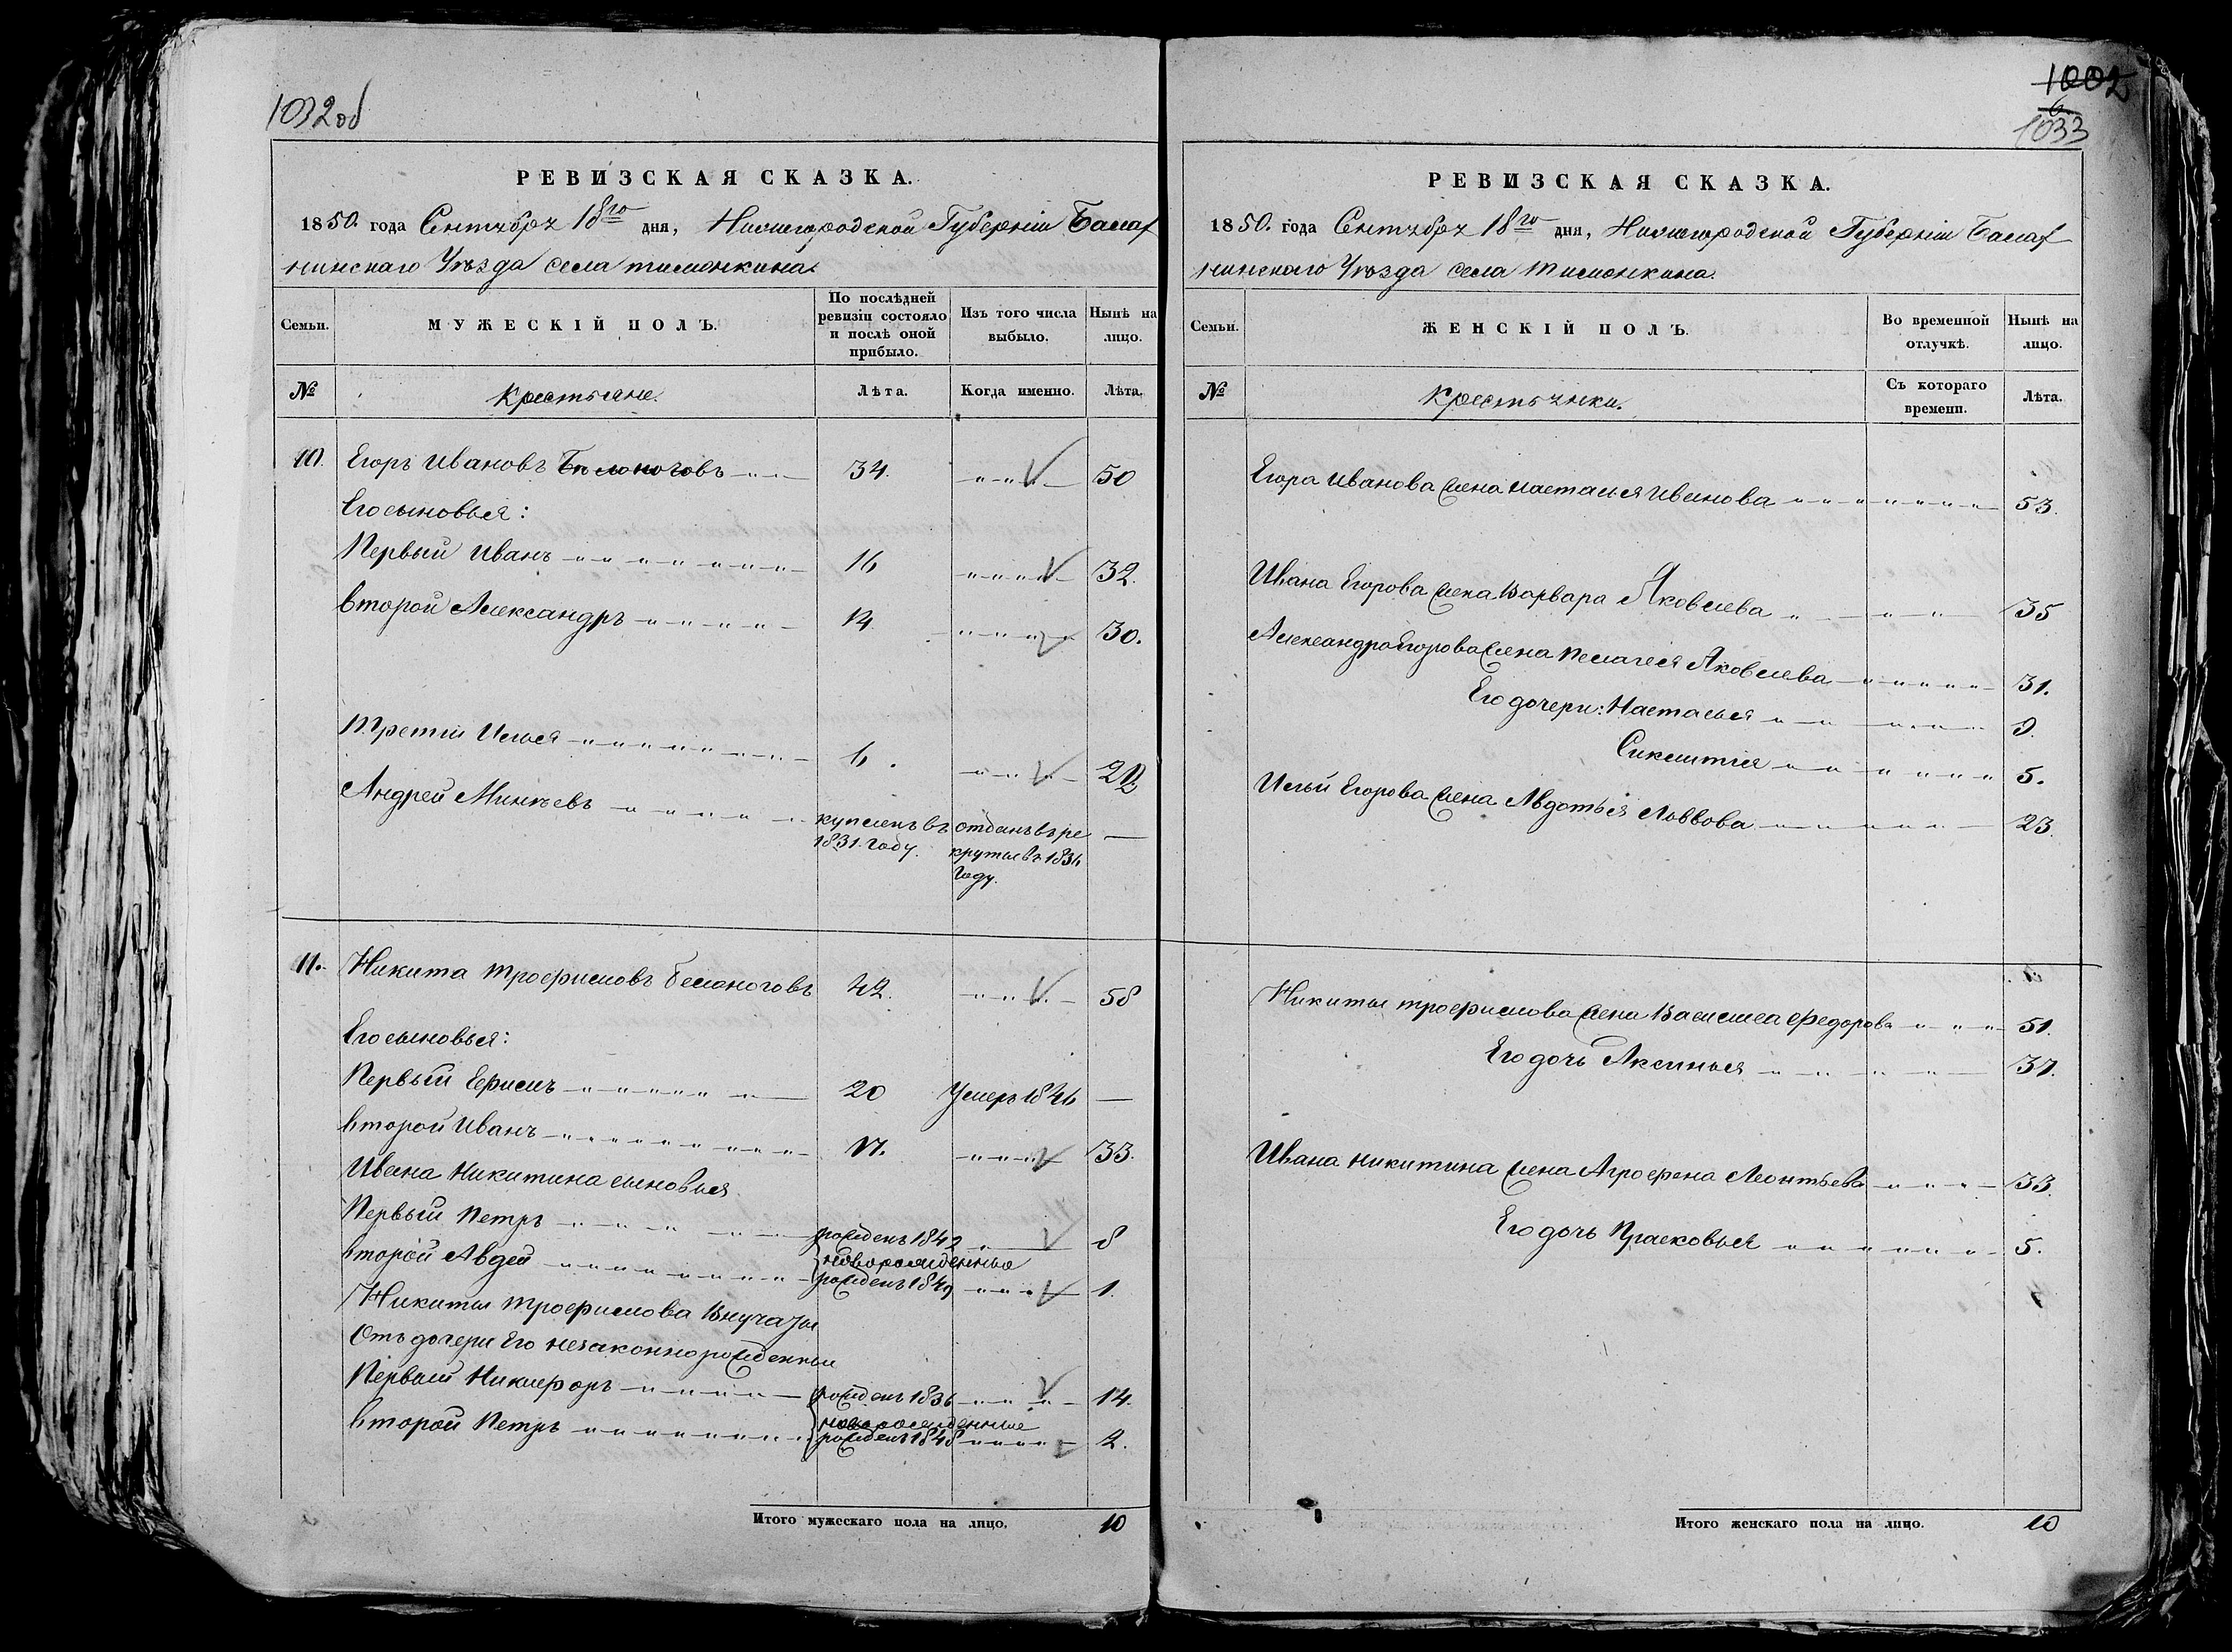 1032об
РЕВИЗСКАЯ СКАЗКА.
1850. года Сентября 18го дня, Нижегородской Губерніи Балах
нинскаго Уѣзда села тимонкина.
Семьи.
МУЖЕСКІЙ ПОЛЪ.
По послѣдней ревизіи состояло и послѣ оной прибыло.
Изъ того числа выбыло.
Нынѣ на лицо.
№
Крестьяне.
Лѣта.
Когда именно.
Лѣта.
10. Егоръ Ивановъ Бѣлоноговъ 34. 50
Его сыновья:
Первый Иванъ 16 32.
второй Александръ 14. 30.
Третій Илья 6. 22
Андрей Минѣевъ купленъ въ 1831. году. отданъ въ ре
крутывъ 1836
году.
11. Никита трофимовъ белоноговъ 42. 58
Его сыновья:
Первый Ефимъ 20 Умеръ 1846
второй Иванъ 17. 33.
Ивана Никитина сыновья
Первый Петръ рожденъ 1842 8
новорожденные
второй Авдей рожденъ 1849 1.
Никиты трофимова внучаты
Отъ дочери Его незаконнорожденныи
Первый Никифоръ рожденъ 1836 14.
новорожденные
второй Петръ рожденъ 1848 2.
Итого мужескаго пола на лицо. 10
1002
6
1033
РЕВИЗСКАЯ СКАЗКА.
1850. года Сентября 18го дня, Нижегородской Губерніи Балах
нинскаго Уѣзда села тимонкина.
Семьи.
ЖЕНСКІЙ ПОЛЪ.
Во временной отлучкѣ.
Нынѣ на лицо.
№
Крестьянки.
Съ котораго времени.
Лѣта.
Егора Иванова жена Настасья Иванова 53.
Ивана Егорова жена Варвара Яковлева 35
Александра Егорова жена Пелагея Яковлева 31.
Его дочери: Настасья 9.
5.
Ильи Егорова жена Авдотья Львова 23.
Никиты трофимова жена Василиса Федорова 51.
Его дочь Аксинья 37.
Ивана Никитина жена Аграфена Леонтьева 33.
Его дочь Прасковья 5.
Итого женскаго пола на лицо. 10